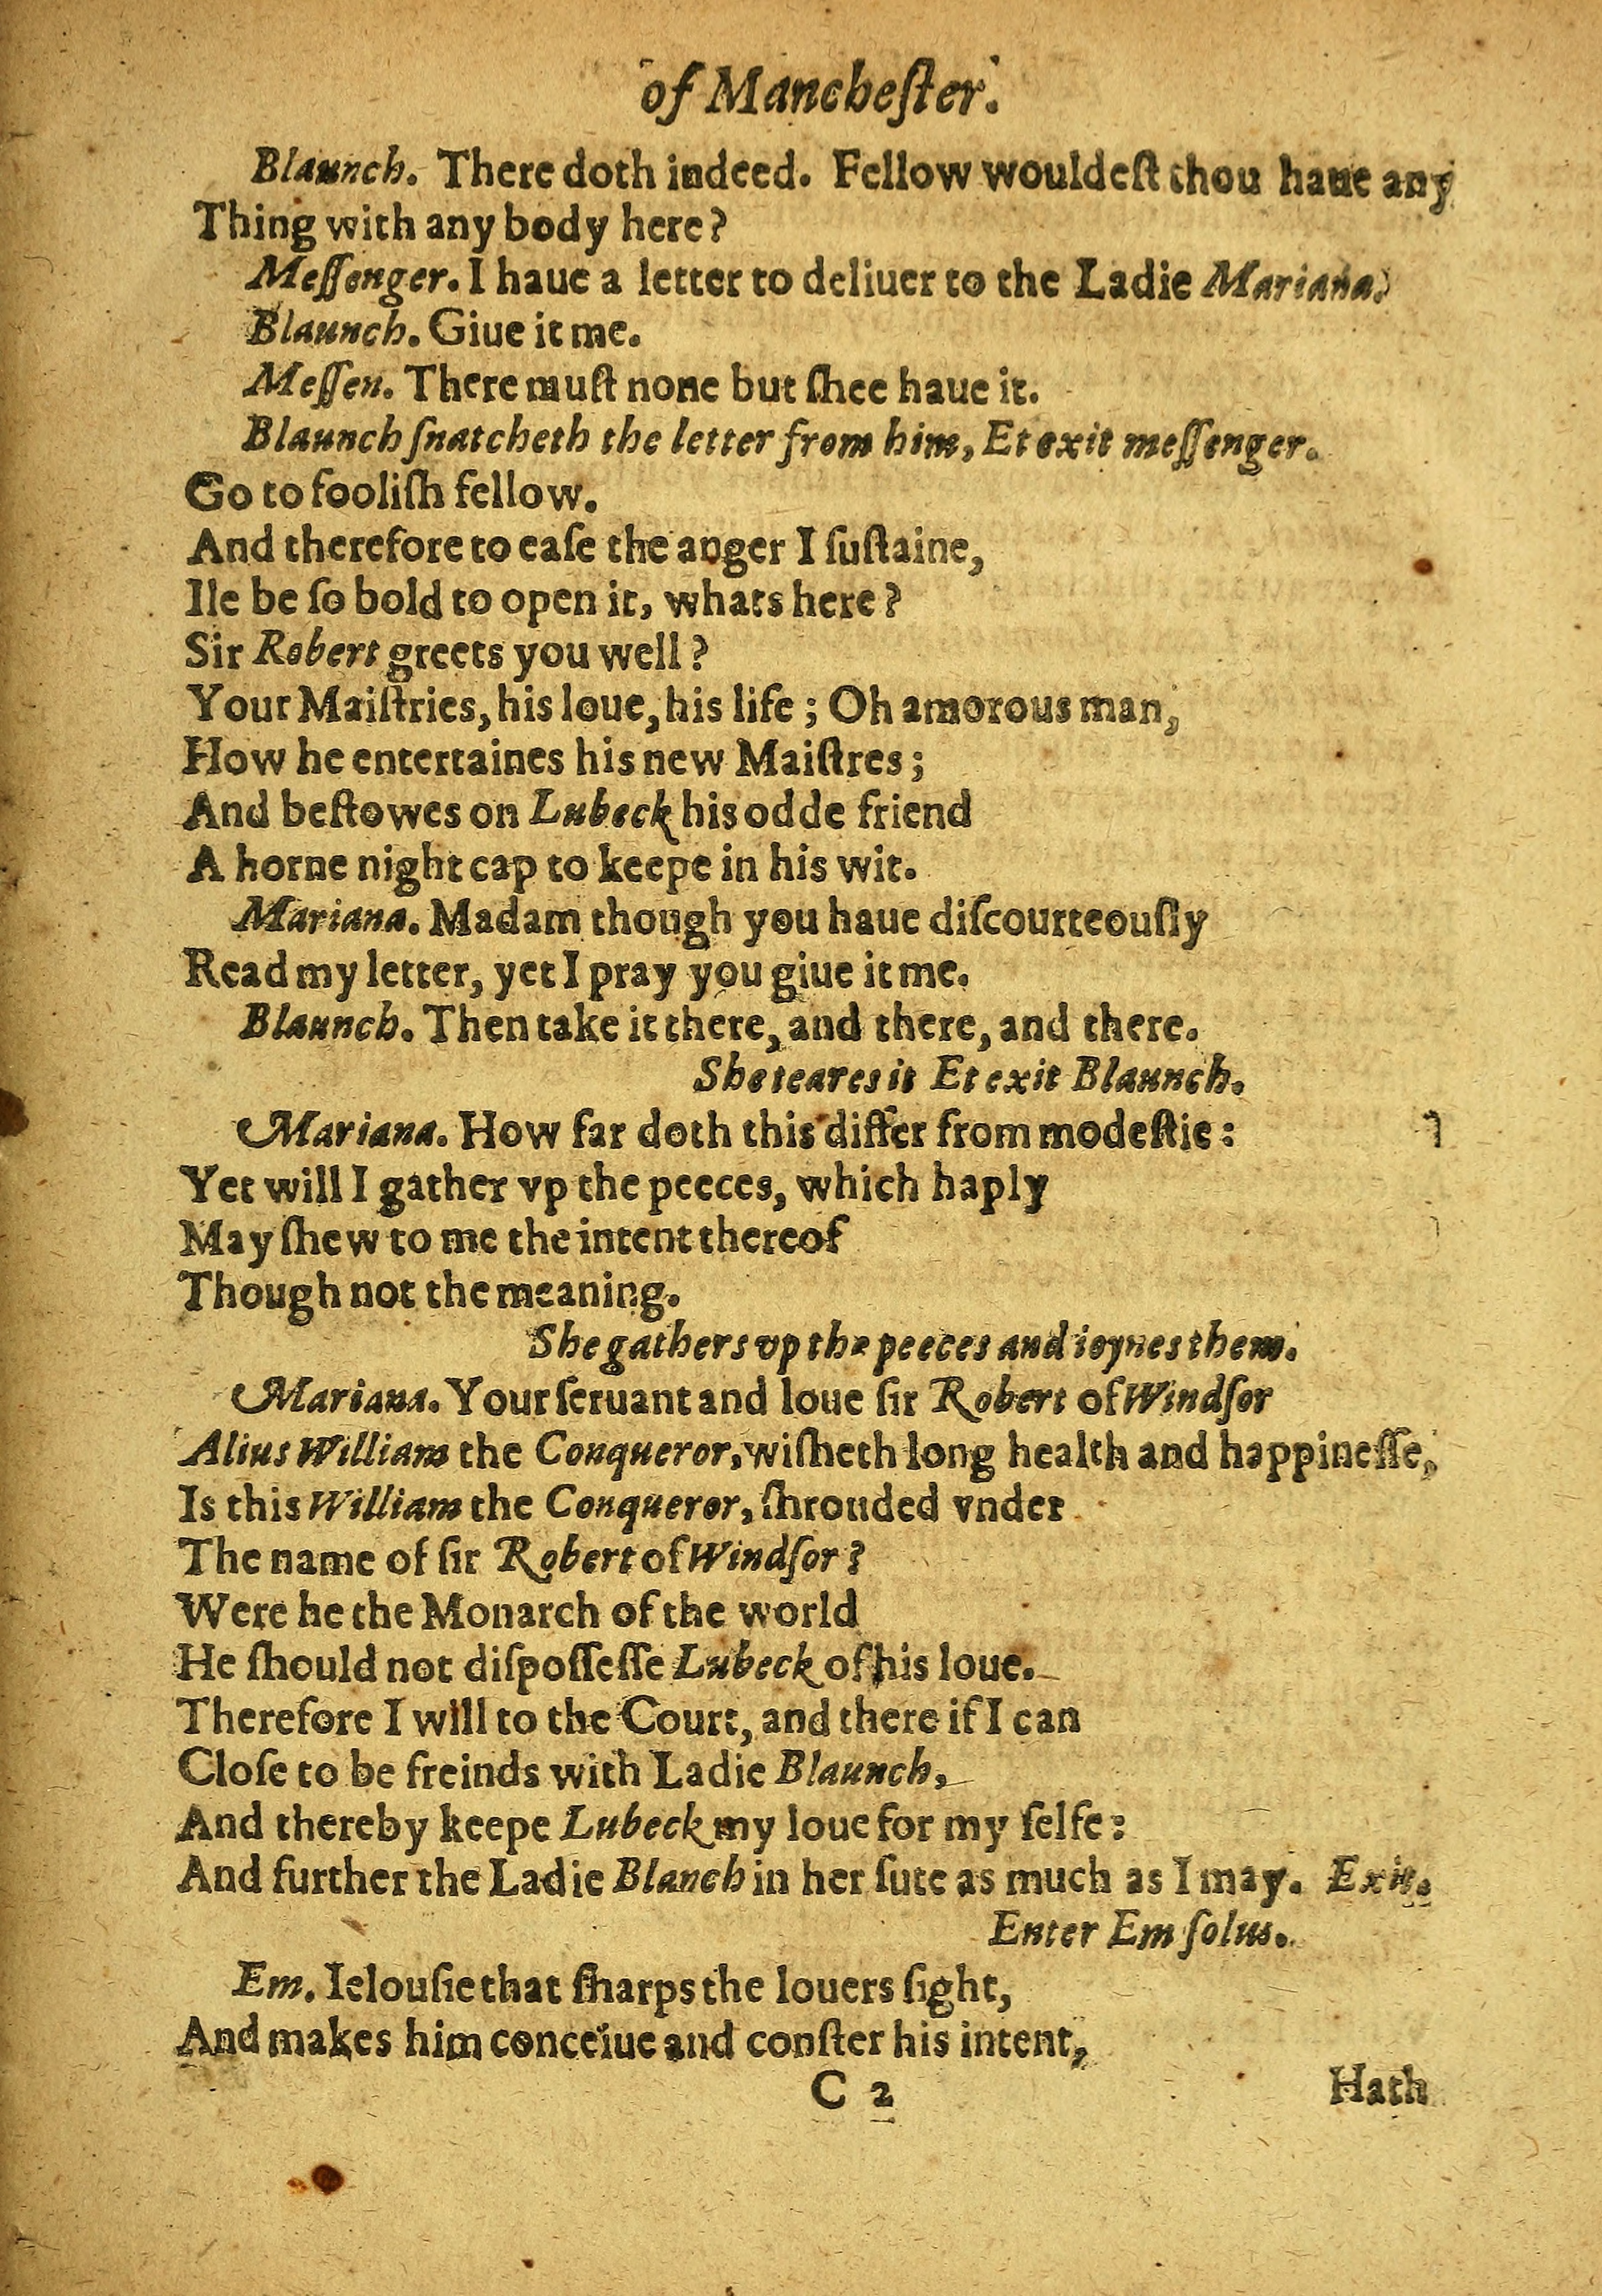 of Mancheſter.
Blaunch. There doth indeed. Fellow wouldeſt thou haue any
Thing with any body here?
Meſſenger. I haue a letter to deliuer to the Ladie Mariana.
Blaunch. Giue it me.
Meſſen. There muſt none but ſhee haue it.
Blaunch ſnatcheth the letter from him, Et exit meſſenger.
Go to fooliſh fellow.
And therefore to eaſe the anger I ſuſtaine,
Ile be ſo bold to open it, whats here?
Sir Robert greets you well?
Your Maiſtries, his loue, his life; Oh amorous man,
How he entertaines his new Maiſtres;
And beſtowes on Lubeck his odde friend
A horne night cap to keepe in his wit.
Mariana. Madam though you haue diſcourteouſly
Read my letter, yet I pray you giue it me.
Blaunch. Then take it there, and there, and there.
She teares it Et exit Blaunch.
Mariana. How far doth this differ from modeſtie:
Yet will I gather vp the peeces, which haply
May ſhew to me the intent thereof
Though not the meaning.
She gathers vp the peeces and ioynes them.
Mariana. Your ſeruant and loue ſir Robert of Windſor
Alius William the Conqueror, wiſheth long health and happineſſe,
Is this William the Conqueror, ſhrouded vnder
The name of ſir Robert of Windſor?
Were he the Monarch of the world
He ſhould not diſpoſſeſſe Lubeck of his loue.
Therefore I will to the Court, and there if I can
Cloſe to be freinds with Ladie Blaunch,
And thereby keepe Lubeck my loue for my ſelfe:
And further the Ladie Blanch in her ſute as much as I may. Exit.
Enter Em ſolus.
Em. Ielouſie that ſharps the louers ſight,
And makes him conceiue and conſter his intent,
C 2 Hath